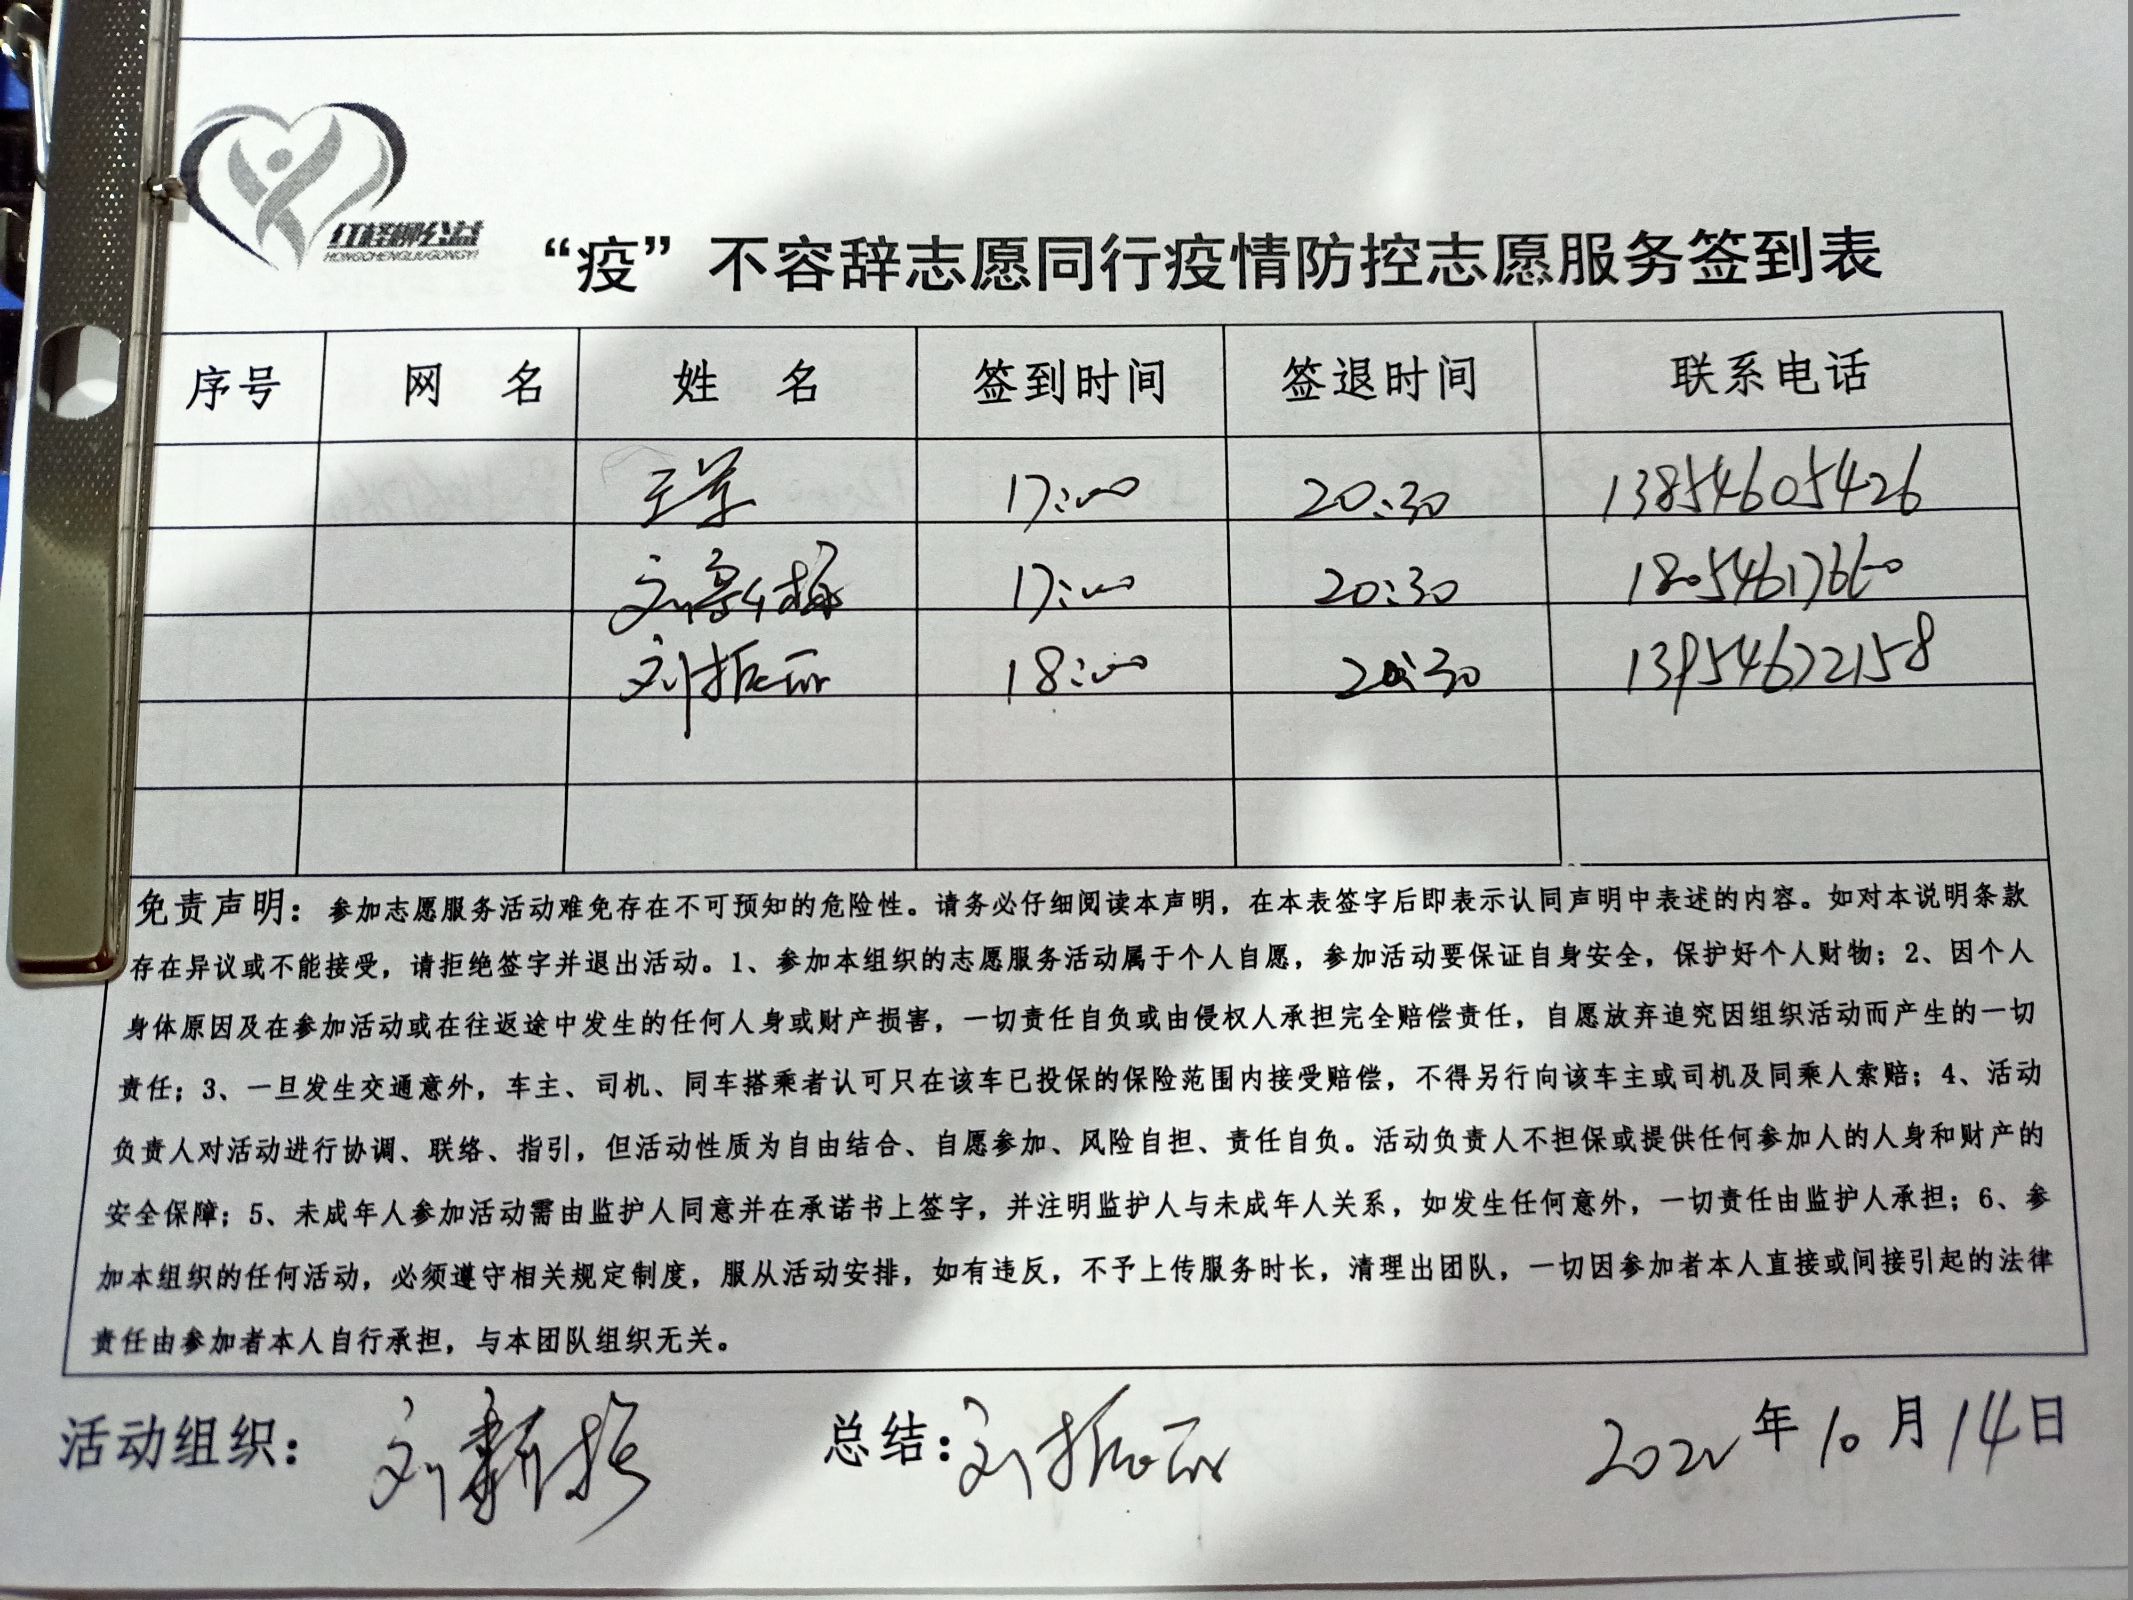 红柽柳公益
HONGCHENGLIUGONGYI
“疫”不容辞志愿同行疫情防控志愿服务签到表
序号 网 名 姓 名 签到时间 签退时间 联系电话
17:00 20:30 13854605426
17:00 20:30 18054617660
刘振丽 18:00 20:30 13954622158
免责声明：参加志愿服务活动难免存在不可预知的危险性。请务必仔细阅读本声明，在本表签字后即表示认同声明中表述的内容。如对本说明条款
存在异议或不能接受，请拒绝签字并退出活动。1、参加本组织的志愿服务活动属于个人自愿，参加活动要保证自身安全，保护好个人财物；2、因个人
身体原因及在参加活动或在往返途中发生的任何人身或财产损害，一切责任自负或由侵权人承担完全赔偿责任，自愿放弃追究因组织活动而产生的一切
责任；3、一旦发生交通意外，车主、司机、同车搭乘者认可只在该车已投保的保险范围内接受赔偿，不得另行向该车主或司机及同乘人索赔；4、活动
负责人对活动进行协调、联络、指引，但活动性质为自由结合、自愿参加、风险自担、责任自负。活动负责人不担保或提供任何参加人的人身和财产的
安全保障；5、未成年人参加活动需由监护人同意并在承诺书上签字，并注明监护人与未成年人关系，如发生任何意外，一切责任由监护人承担；6、参
加本组织的任何活动，必须遵守相关规定制度，服从活动安排，如有违反，不予上传服务时长，清理出团队，一切因参加者本人直接或间接引起的法律
责任由参加者本人自行承担，与本团队组织无关。
活动组织： 总结：刘振丽 2022年10月14日